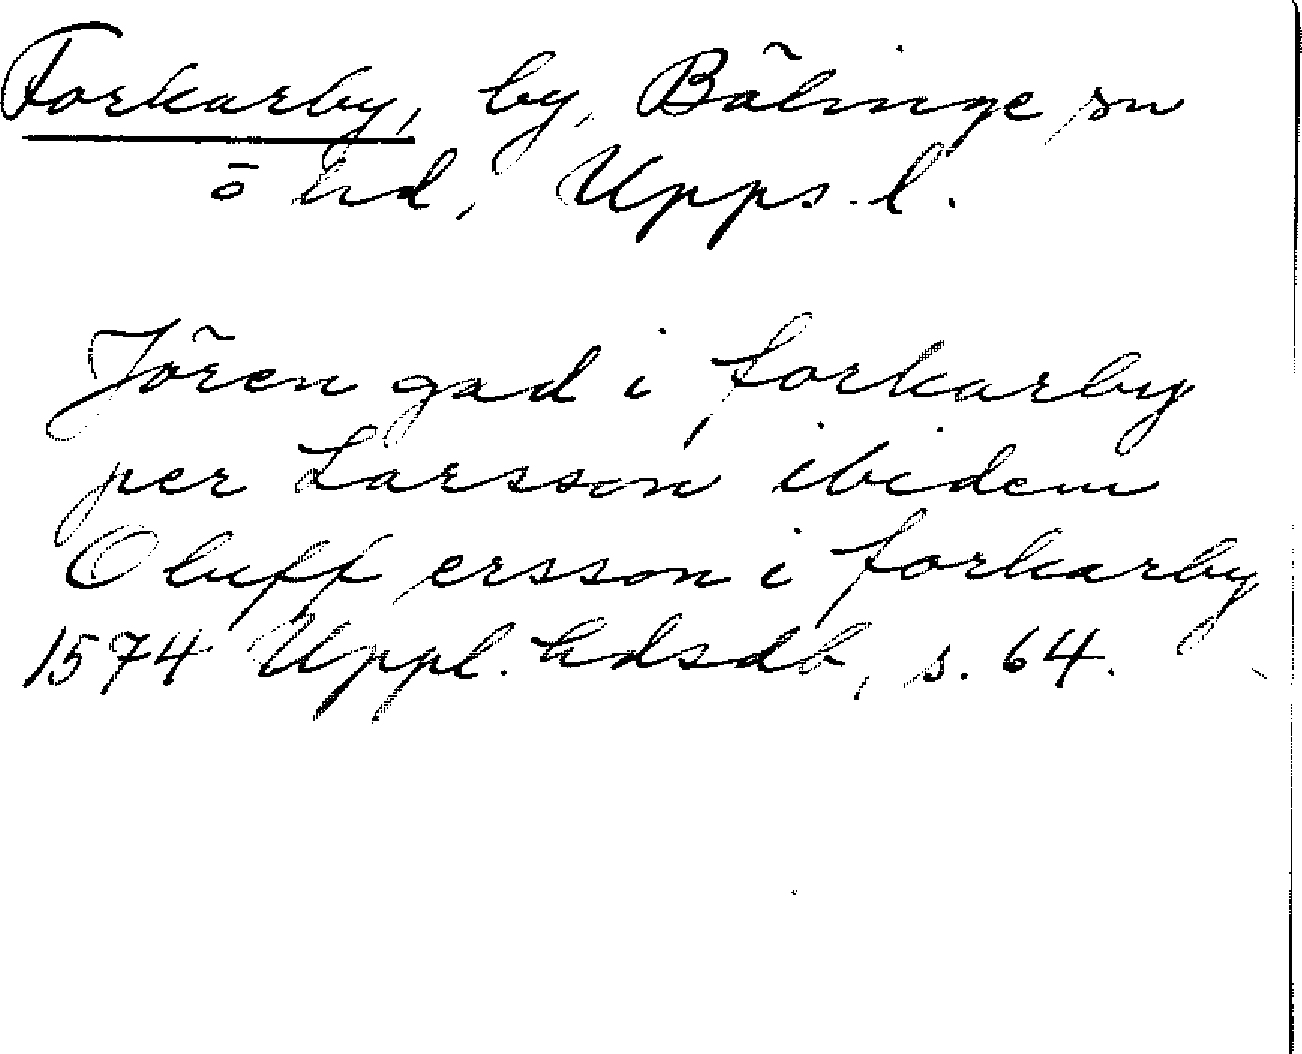 Forkarby, by, Bälinge sn
o hd, Upps. l.
Jören gad i forkarby
per Larsson ibidem
Oluff ersson i forkarby
1574 Uppl. hdsdb, s. 64.